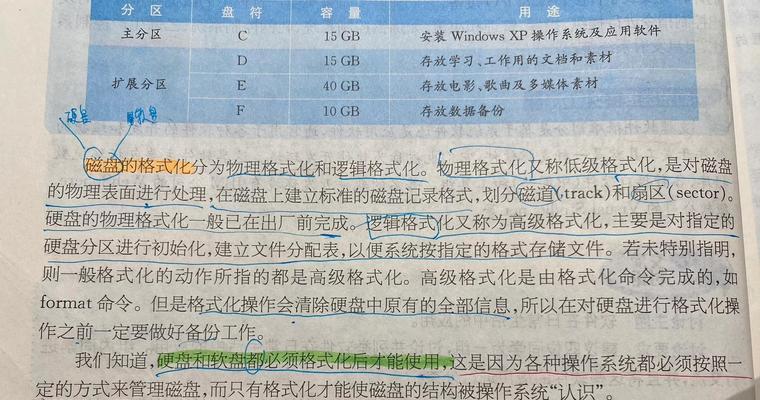 分区 盘符 容量 用途
主分区 C 15 GB 安装 Windows XP 操作系统及应用软件
D 15 GB 存放学习、工作用的文档和素材
扩展分区 E 40 GB 存放电影、歌曲及多媒体素材
F 10 GB 存放数据备份
硬盘 软盘
磁盘的格式化分为物理格式化和逻辑格式化。物理格式化又称低级格式化,是对磁盘
的物理表面进行处理,在磁盘上建立标准的磁盘记录格式,划分磁道(track)和扇区(sector)。
硬盘的物理格式化一般已在出厂前完成。逻辑格式化又称为高级格式化,主要是对指定的
硬盘分区进行初始化,建立文件分配表,以便系统按指定的格式存储文件。若未特别指明,
则一般格式化的动作所指的都是高级格式化。高级格式化是由格式化命令完成的,如
format 命令。但是格式化操作会清除硬盘中原有的全部信息,所以在对硬盘进行格式化操
作之前一定要做好备份工作。
我们知道,硬盘和软盘都必须格式化后才能使用,这是因为各种操作系统都必须按照一
定的方式来管理磁盘,而只有格式化才能使磁盘的结构被操作系统“认识”。